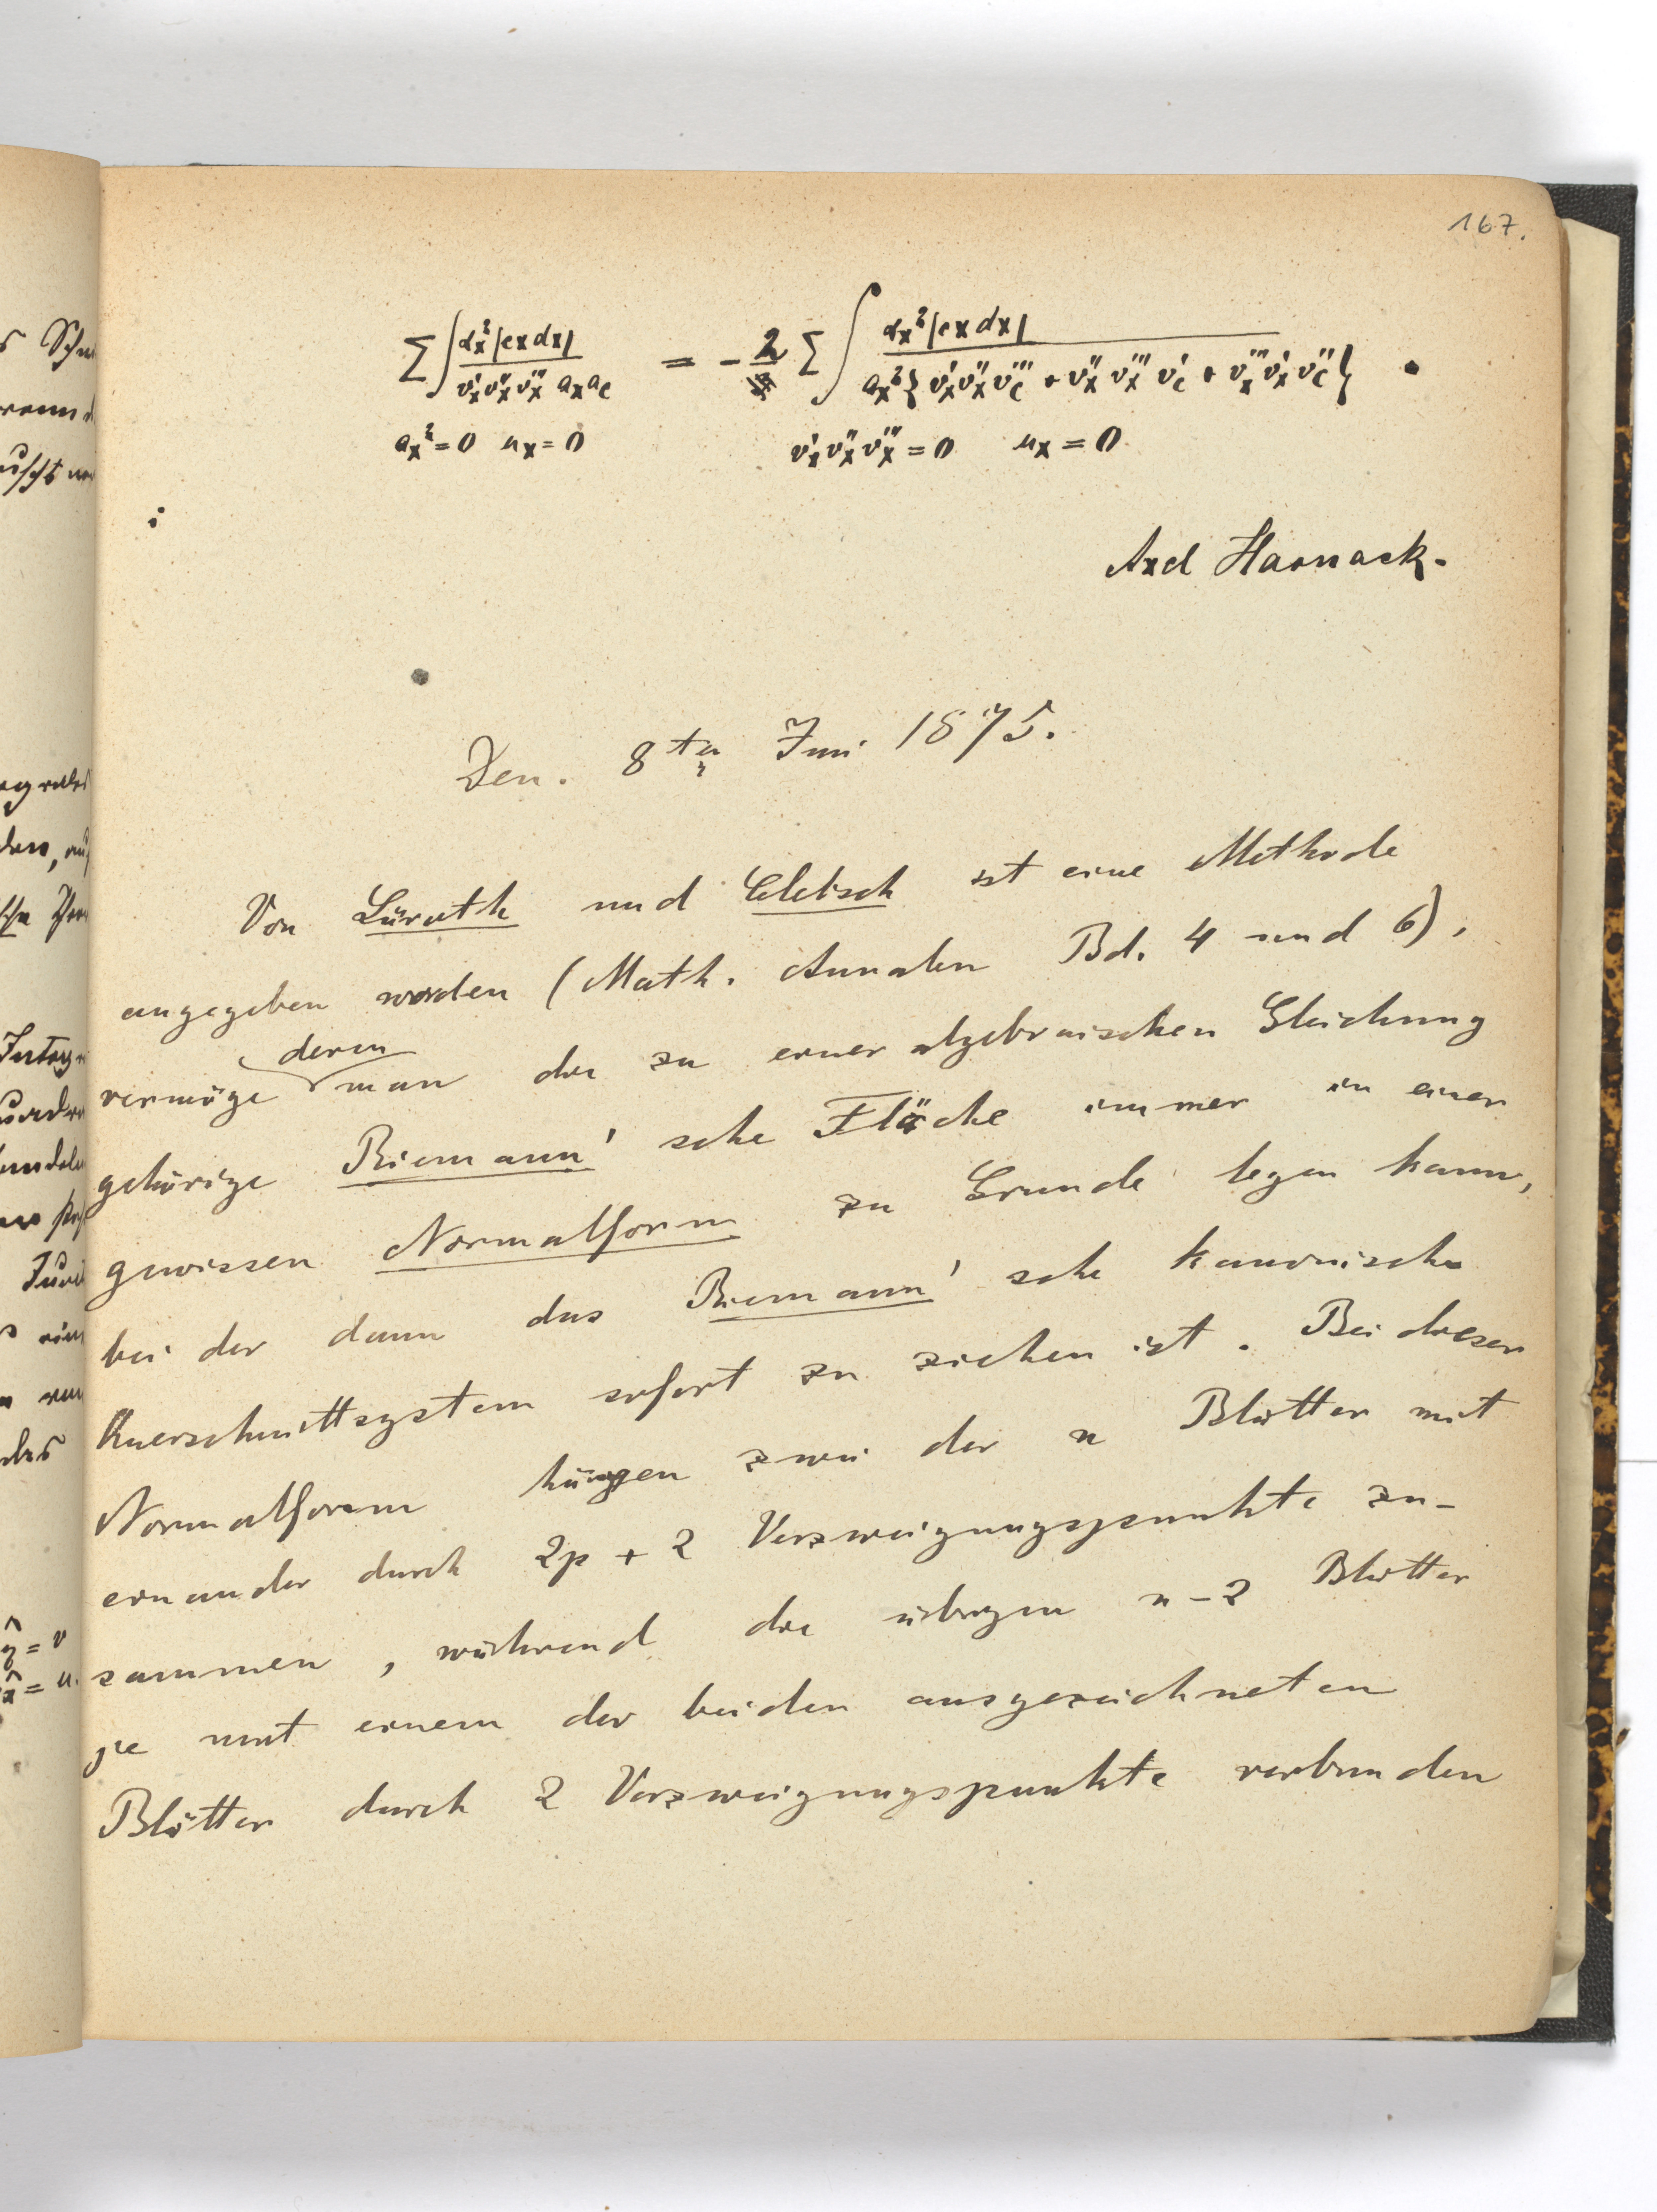 167.
∑∫ αx²|cxdx| / v'x v''x v'''x ax ac = - 2 ∑∫ αx²|cxdx| / ax²{v'x v''x v'''c + v''x v'''x v'c + v'''x v'x v''c} .
ax²=0 ux=0 v'x v''x v'''x=0 ux=0
Axel Harnack.
Den. 8ten Juni 1875.
Von Lüroth und Clebsch ist eine Methode
angegeben worden (Math. Annalen Bd. 4 und 6),
vermöge deren man die zu einer algebraischen Gleichung
gehörige Riemann'sche Fläche immer in einer
gewissen Normalform zu Grunde legen kann,
bei der dann das Riemann'sche kanonische
Querschnittsystem sofort zu ziehen ist. Bei dieser
Normalform hängen zwei der n Blätter mit
einander durch 2p + 2 Verzweigungspunkte zu-
sammen, während die übrigen n-2 Blätter
je mit einem der beiden ausgezeichneten
Blätter durch 2 Verzweigungspunkte verbunden